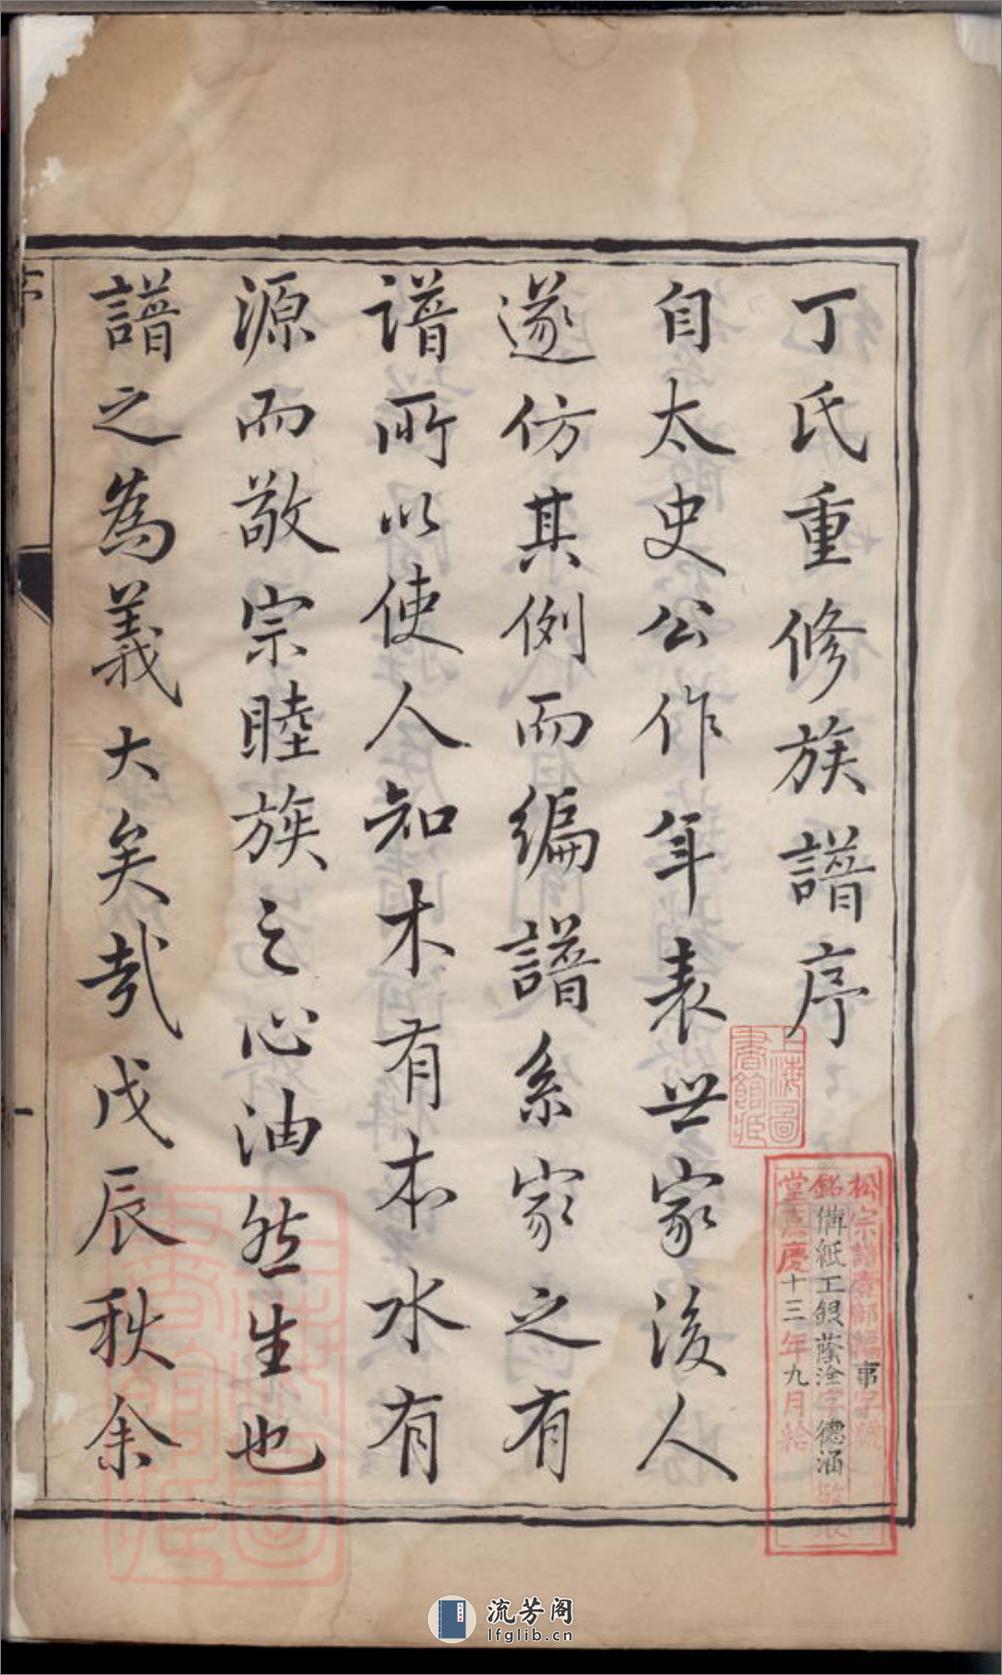 丁氏重修族譜序
自太史公作年表世家後人
遂仿其例而編譜系家之有
譜所以使人知木有本水有
源而敬宗睦族之心油然生也
譜之為義大矣哉戊辰秋余
序
上海圖
書館藏
松宗譜壹部編事字號
銘備紙工銀蔭淦字德涵
堂嘉慶十三年九月給
流芳阁
lfglib.cn